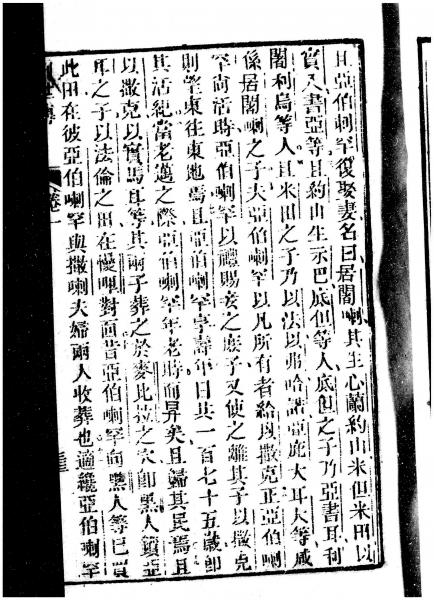 且亞伯喇罕復娶妻名曰居闍喇其生心蘭約山米但米田以
實八書亞等且約山生示巴底但等人底但之子乃亞書耳利
闍利烏等人且米田之子乃以法以弗哈諾亞庇大耳大等咸
係居闍喇之子夫亞伯喇罕以凡所有者給與撒克正亞伯喇
罕尚活時亞伯喇罕以禮賜妾之庶子又使之離其子以撒克
則望東往東地焉且亞伯喇罕享壽年日共一百七十五歲卽
其活絕當老邁之際亞伯喇罕年老時而昇矣且歸其民焉且
以撒克以實馬耳等其兩子葬之於麥比拉之穴卽黑人鎖亞
耳之子以法倫之田在慢哩對面昔亞伯喇罕向黑人等已買
此田在彼亞伯喇罕與撒喇夫婦兩人收葬也適纔亞伯喇罕
卷一